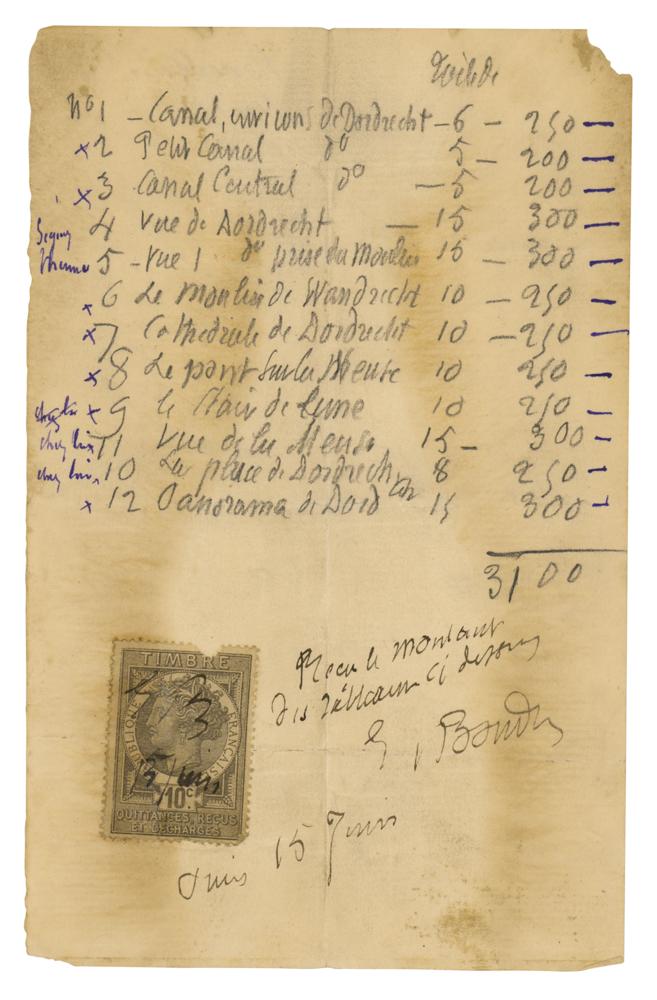 Toile de
No 1 – Canal, environs de Dordrecht – 6 – 250 –
x 2 Petit Canal do 5 – 200 –
x 3 Canal Central do – 5 200 –
4 Vue de Dordrecht – 15 300 –
5 – Vue 1 do prise du Moulin 15 – 300 –
x 6 Le Moulin de Wandrecht 10 – 250 –
x 7 Cathedrale de Dordrecht 10 – 250 –
x 8 Le pont sur la Meuse 10 250 –
x 9 le Clair de lune 10 250 –
chez lui x 11 Vue de la Meuse 15 – 300 –
chez lui x 10 La place de Dordrech 8 250 –
x 12 Panorama de Dord 15 300 –
3100
Recu le montant
des tableaux ci dessus
E, Boudin
TIMBRE
RÉPUBLIQUE FRANÇAISE
15 Juin
10c
QUITTANCES, REÇUS
ET DÉCHARGES
15 Juin